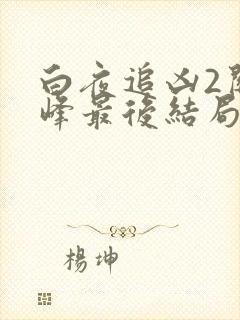 白夜追凶2關
峰最後結局
楊坤